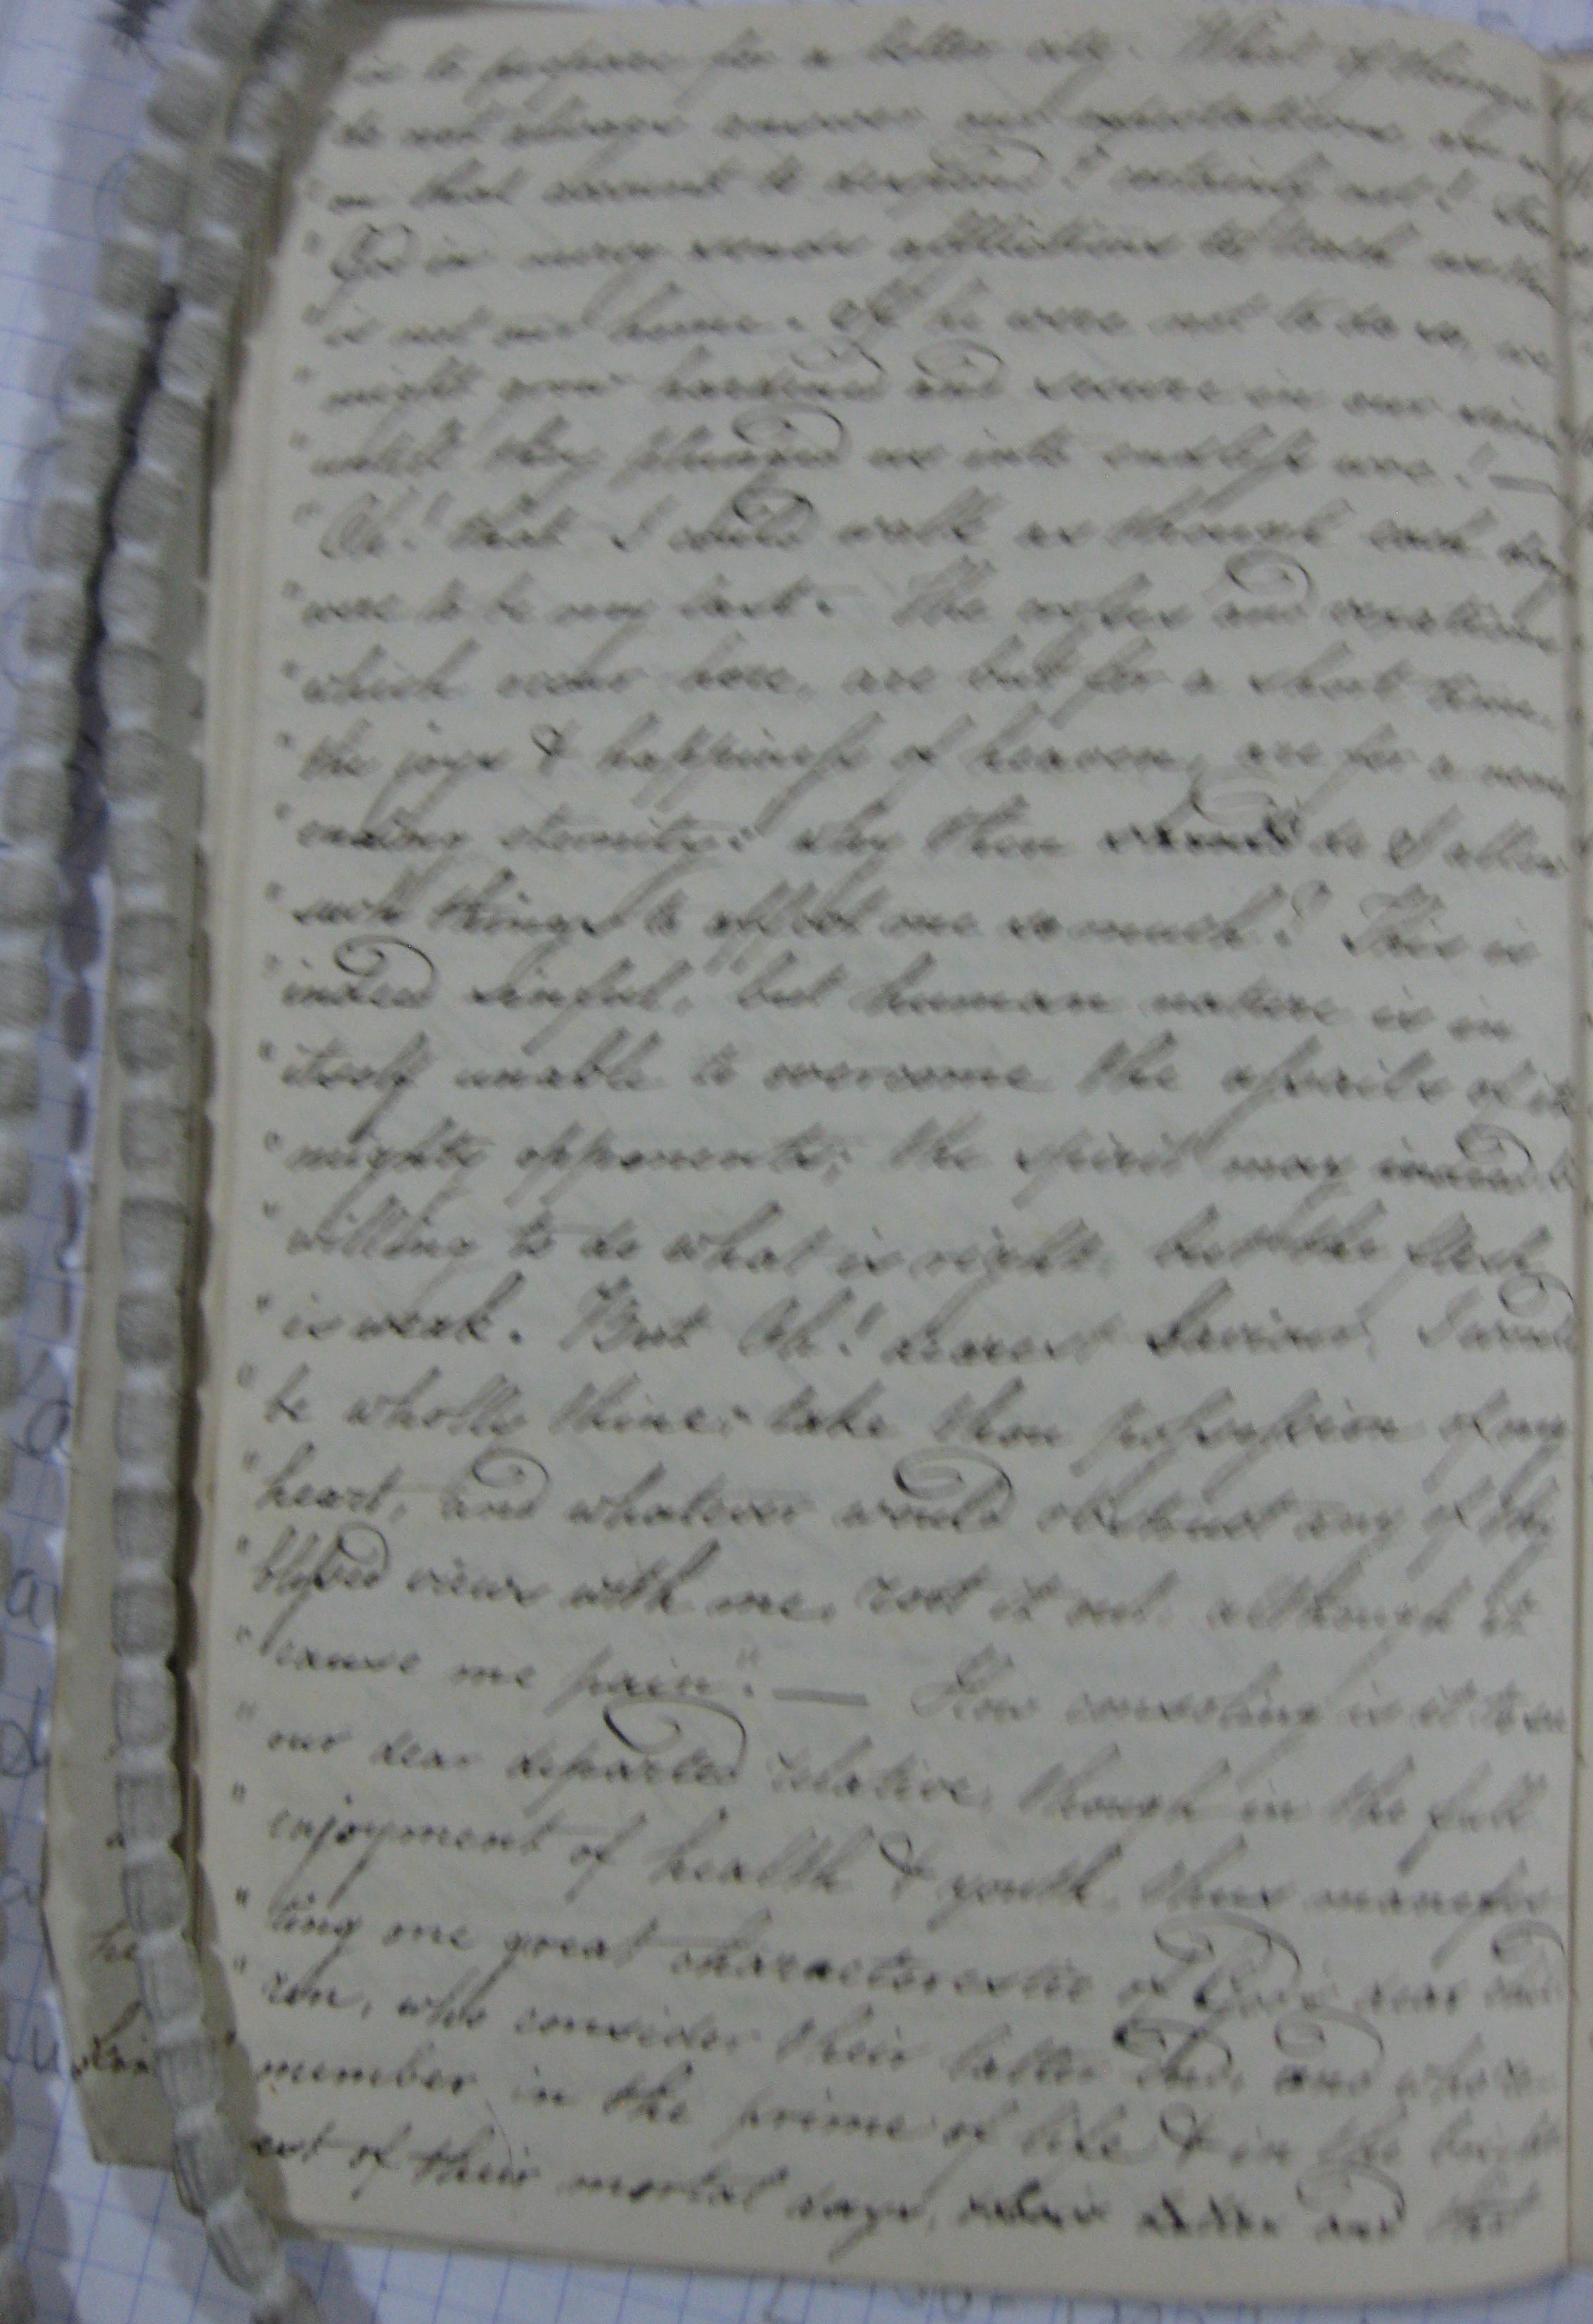 is to prepare for a better city. What if things
do not always answer our expectations, are we
" on that account to despond? certainly not!
" God in mercy sends afflictions to teach us
" is not our home. If he were not to do so, we
" might grow hardened and secure in our sins
" until they plunged us into endless woe."—
" "Oh! that I could walk as though each day
" were to be my last. The and vexations
" which occur here, are but for a short time,
" the joys & happiness of heaven, are for a never
" ending eternity: why then do I allow
" such things to affect me so much? This is
" indeed sinful," but human nature is in
" itself unable to overcome the assaults of its
" mighty opponents; the spirit may indeed be
" willing to do what is right, but the flesh
" is weak. But Oh! dearest Saviour, I would
" be wholly thine; take thou possession of my
" heart, and whatever would obstruct any of thy
" blessed views with me, root it out, although it
" cause me pain".— How consoling is it to see
" our dear departed relative, though in the full
" enjoyment of health & youth, thus manifes
" ting one great characterestic of God's dear child
" ren, who consider their latter end, and who re
" member in the prime of life & in the bright
est of their mortal days, and that